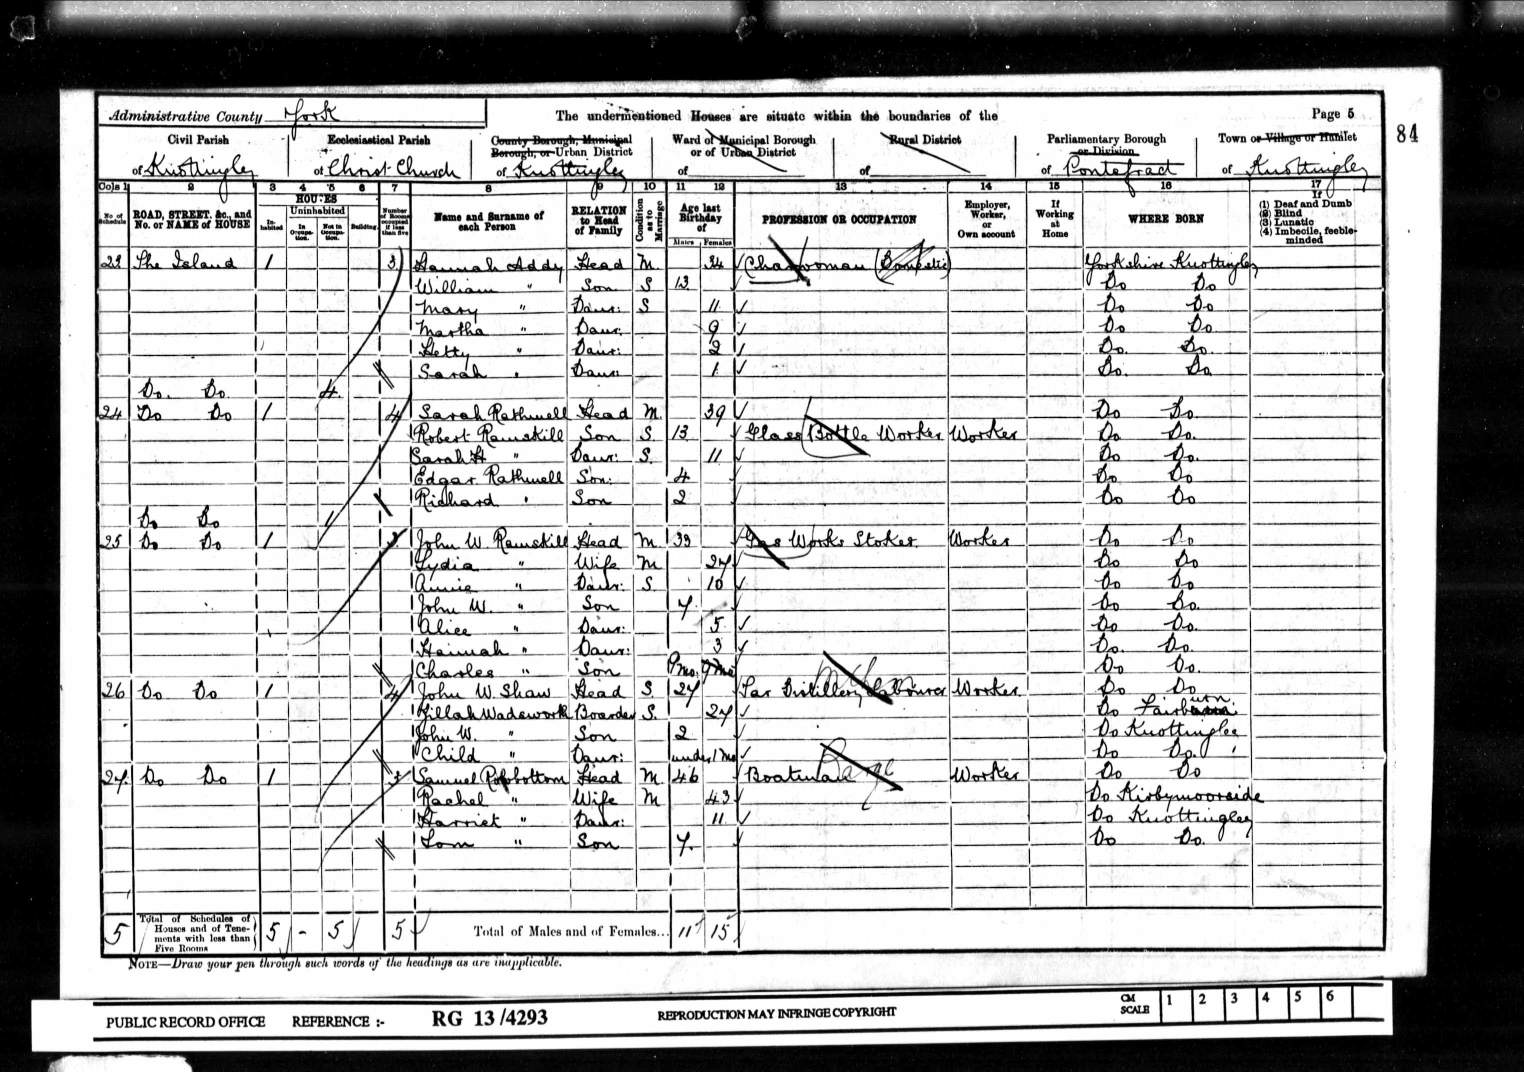 Administrative County York
The undermentioned Houses are situate within the boundaries of the
Page 5
84
Civil Parish
of Knottingley
Ecclesiastical Parish
of Christ Church
County Borough, Municipal Borough, or Urban District
of Knottingley
Ward of Municipal Borough or of Urban District
of
Rural District
of
Parliamentary Borough or Division
of Pontefract
Town or Village or Hamlet
of Knottingley
Cols 1 2 3 4 5 6 7 8 9 10 11 12 13 14 15 16 17
No. of Schedule
ROAD, STREET, &c., and No. or NAME of HOUSE
HOUSES
Inhabited
Uninhabited
In Occupation.
Not in Occupation.
Building.
Number of Rooms occupied if less than five
Name and Surname of each Person
RELATION to Head of Family
Condition as to Marriage
Age last Birthday of
Males Females
PROFESSION OR OCCUPATION
Employer, Worker, or Own account
If Working at Home
WHERE BORN
If
(1) Deaf and Dumb
(2) Blind
(3) Lunatic
(4) Imbecile, feeble-minded
The Island 1 3 Hannah Addy Head M 34 Charwoman (Domestic) Yorkshire Knottingley
William " Son S 13 Do Do
Mary " Daur: S 11 Do Do
Martha " Daur: 9 Do Do
Hetty " Daur: 2 Do Do
Sarah " Daur: 1 Do. Do
Do. Do. 4
24 Do Do 1 4 Sarah Rathwell Head M 39 Do Do.
Robert Ramskill Son S 13 Glass Bottle Worker Worker Do Do.
Sarah H " Daur: S. 11 Do Do.
Edgar Rathwell Son: 4 Do Do
Richard " Son 2 Do Do
Do Do 1
25 Do Do 1 3 John W. Ramskill Head M. 33 Gas Works Stoker. Worker Do Do
Lydia " Wife M 27 Do Do
Annie " Daur: S. 10 Do Do
John W. " Son 7 Do Do.
Alice " Daur: 5 Do Do.
Hannah " Daur: 3 Do. Do.
Charles " Son 9 mo. 9 mo Do Do.
26 Do Do 1 4 John W. Shaw Head S 27 Tar Distillery Labourer Worker Do Do
Zillah Wadsworth Boarder S. 27 Do Fairburn
John W. " Son 2 Do Knottinglee
Child " Daur: under 1 mo Do Do. "
27. Do Do 1 3 Samuel Robobottom Head M 46 Boatman Barge Worker Do Do
Rachel " Wife M 43 Do Kirbymoorside
Harriet " Daur: 11 Do Knottingley
Tom " Son 7. Do Do.
5 Total of Schedules of Houses and of Tenements with less than Five Rooms 5 - 5 5 Total of Males and of Females... 11 15
NOTE—Draw your pen through such words of the headings as are inapplicable.
PUBLIC RECORD OFFICE REFERENCE :- RG 13/4293 REPRODUCTION MAY INFRINGE COPYRIGHT
CM SCALE 1 2 3 4 5 6